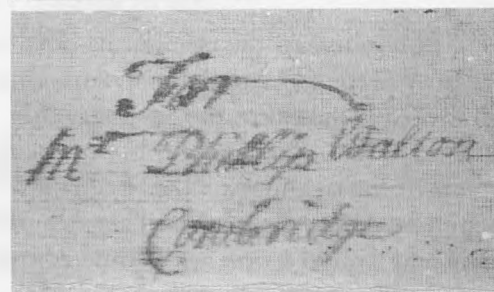 For
Mr Phillip Walton
Cambridge